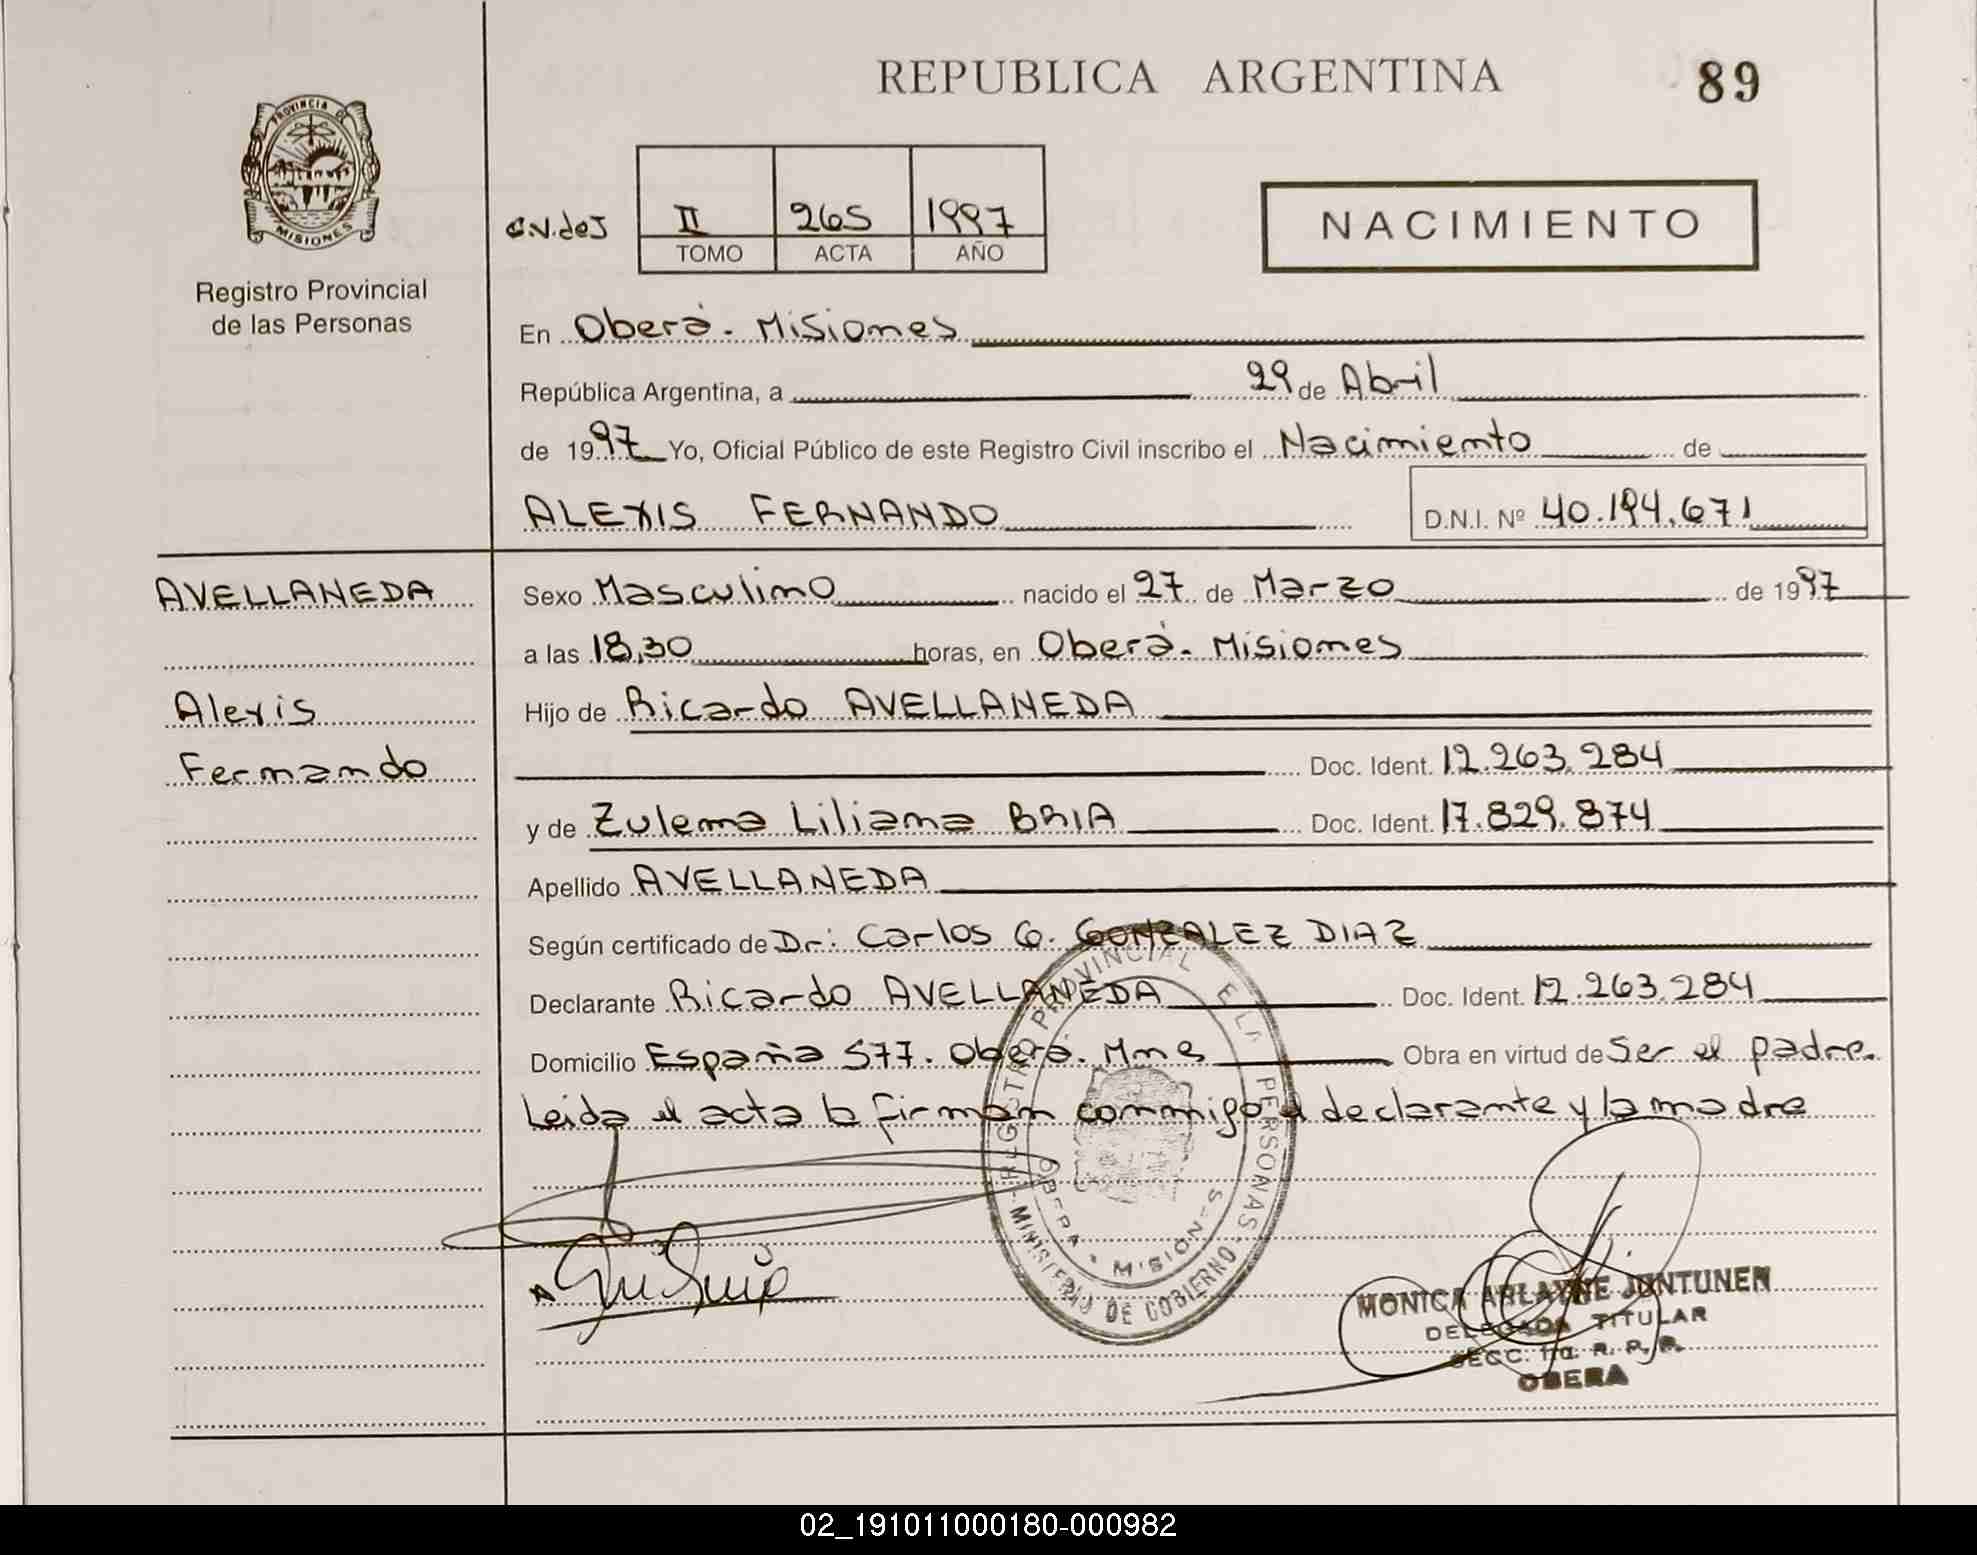 REPUBLICA ARGENTINA
89
PROVINCIA DE
MISIONES
Registro Provincial
de las Personas
C.V.deJ
II 265 1997
TOMO ACTA AÑO
NACIMIENTO
En Oberà. Misiones
República Argentina, a 29 de Abril
de 1997 Yo, Oficial Público de este Registro Civil inscribo el Nacimiento de
ALEXIS FERNANDO D.N.I. Nº 40.194.671
AVELLANEDA
Alexis
Fernando
Sexo Masculino nacido el 27 de Marzo de 1997
a las 18,30 horas, en Oberà. Misiones
Hijo de Ricardo AVELLANEDA
Doc. Ident. 12.263.284
y de Zulema Liliana BRIA Doc. Ident. 17.829.874
Apellido AVELLANEDA
Según certificado de Dr: Carlos G. GONZALEZ DIAZ
Declarante Ricardo AVELLANEDA Doc. Ident. 12.263.284
Domicilio España 577. Oberà. Mnes Obra en virtud de Ser el padre.
Leida el acta la firman conmigo el declarante y la madre
REGISTRO PROVINCIAL DE LAS PERSONAS
MINISTERIO DE GOBIERNO
OBERA - MISIONES
MONICA ARLAYNE JUNTUNEN
DELEGADA TITULAR
SECC. 1ra. R. P. P.
OBERA
02_191011000180-000982